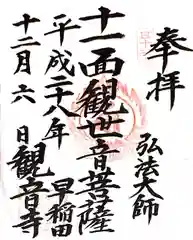 奉拝
弘法大師
十一面観世音菩薩
平成二十八年
早稲田
十二月六日
観音寺